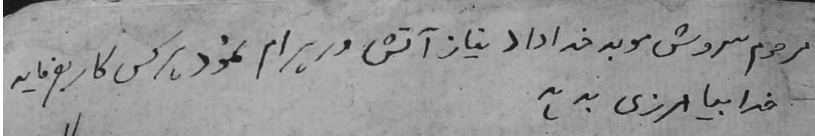 مرحوم سروش موبد خداداد نیاز آتش ورهرام نمود هرکس کار بفرماید
خدا بیامرزی بدهد